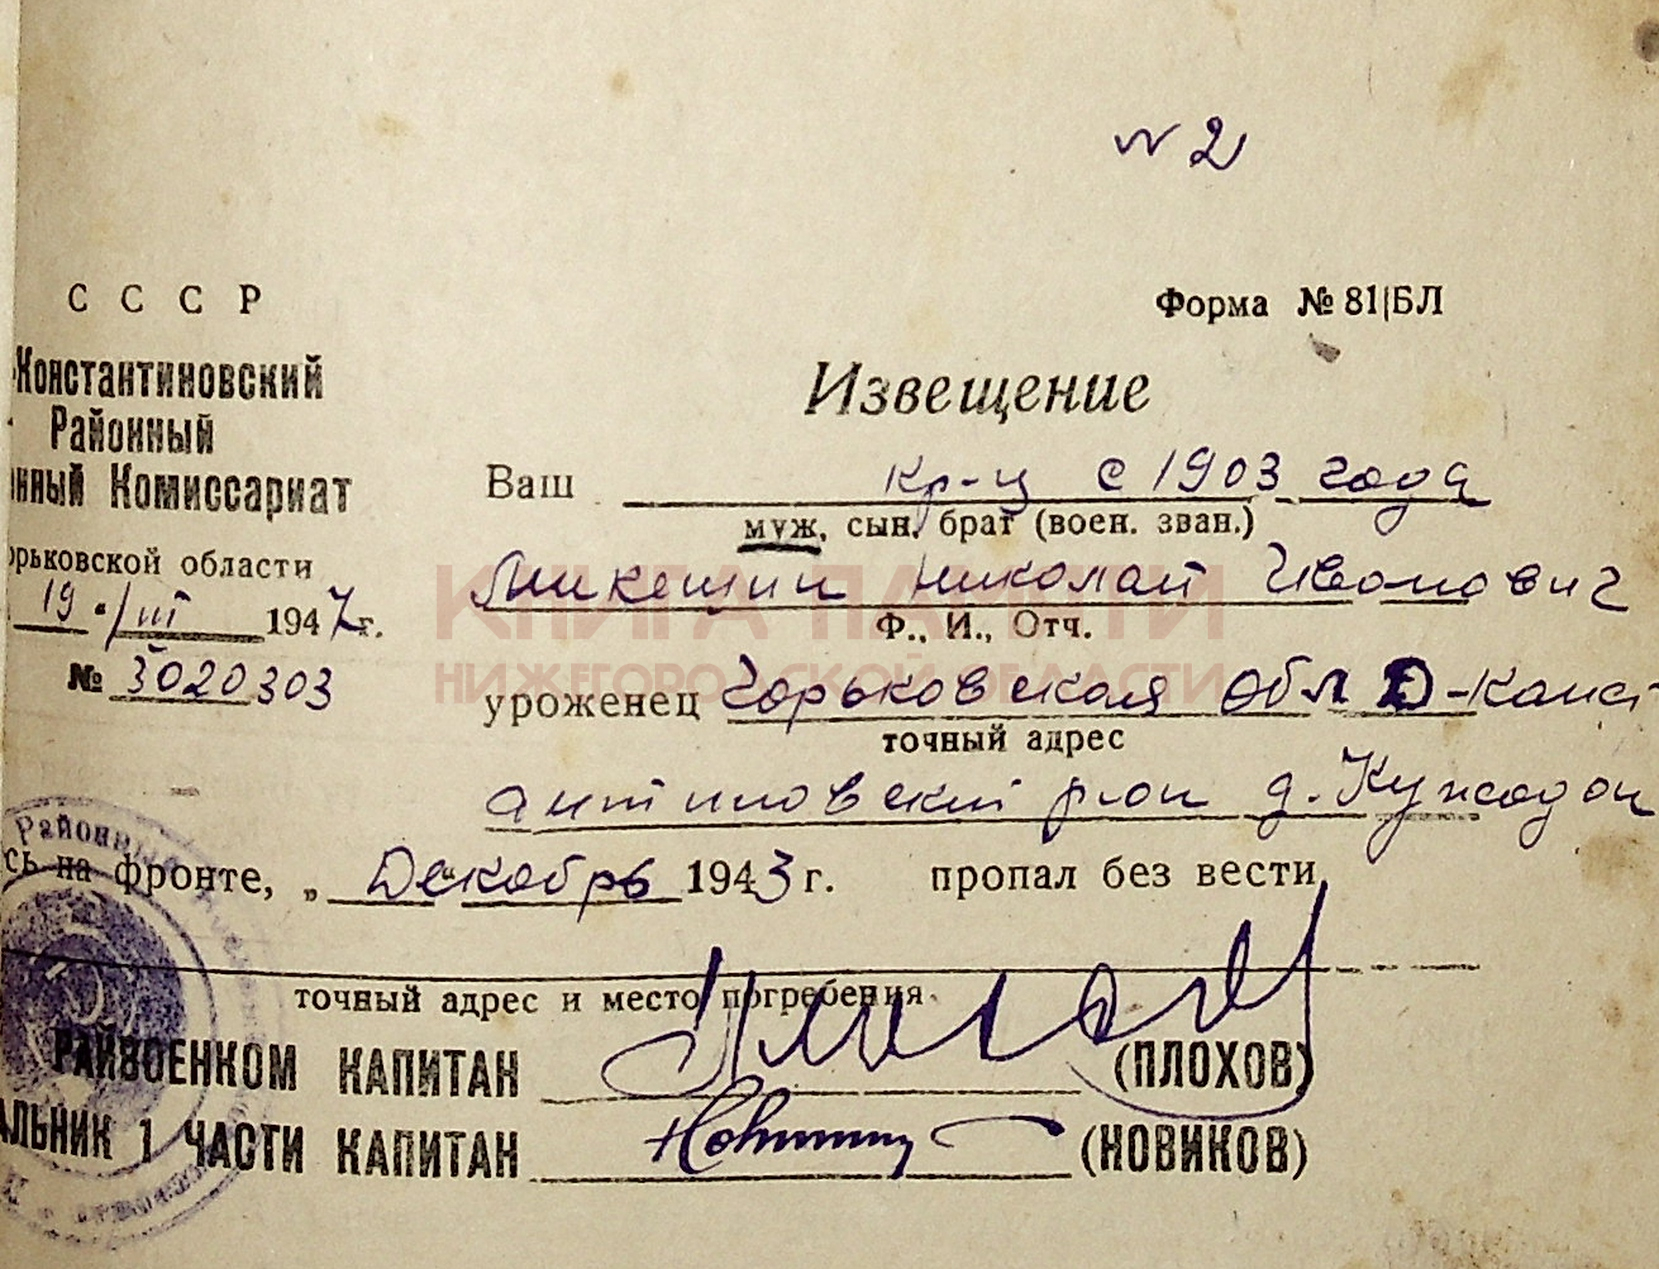 № 2
С С С Р
Форма № 81|БЛ
-Константиновский
Районный
нный Комиссариат
орьковской области
19 / III 1947 г.
№ 3020303
Извещение
Ваш кр-ц с 1903 года
муж, сын, брат (воен. зван.)
Микешин Николай Иванович
Ф., И., Отч.
уроженец Горьковская обл Д-Конст
точный адрес
антиновский р-он д.
сь на фронте, „ Декабрь 1943 г. пропал без вести
точный адрес и место погребения
РАЙВОЕНКОМ КАПИТАН (ПЛОХОВ)
АЛЬНИК 1 ЧАСТИ КАПИТАН (НОВИКОВ)
Районный
КНИГА ПАМЯТИ
НИЖЕГОРОДСКОЙ ОБЛАСТИ